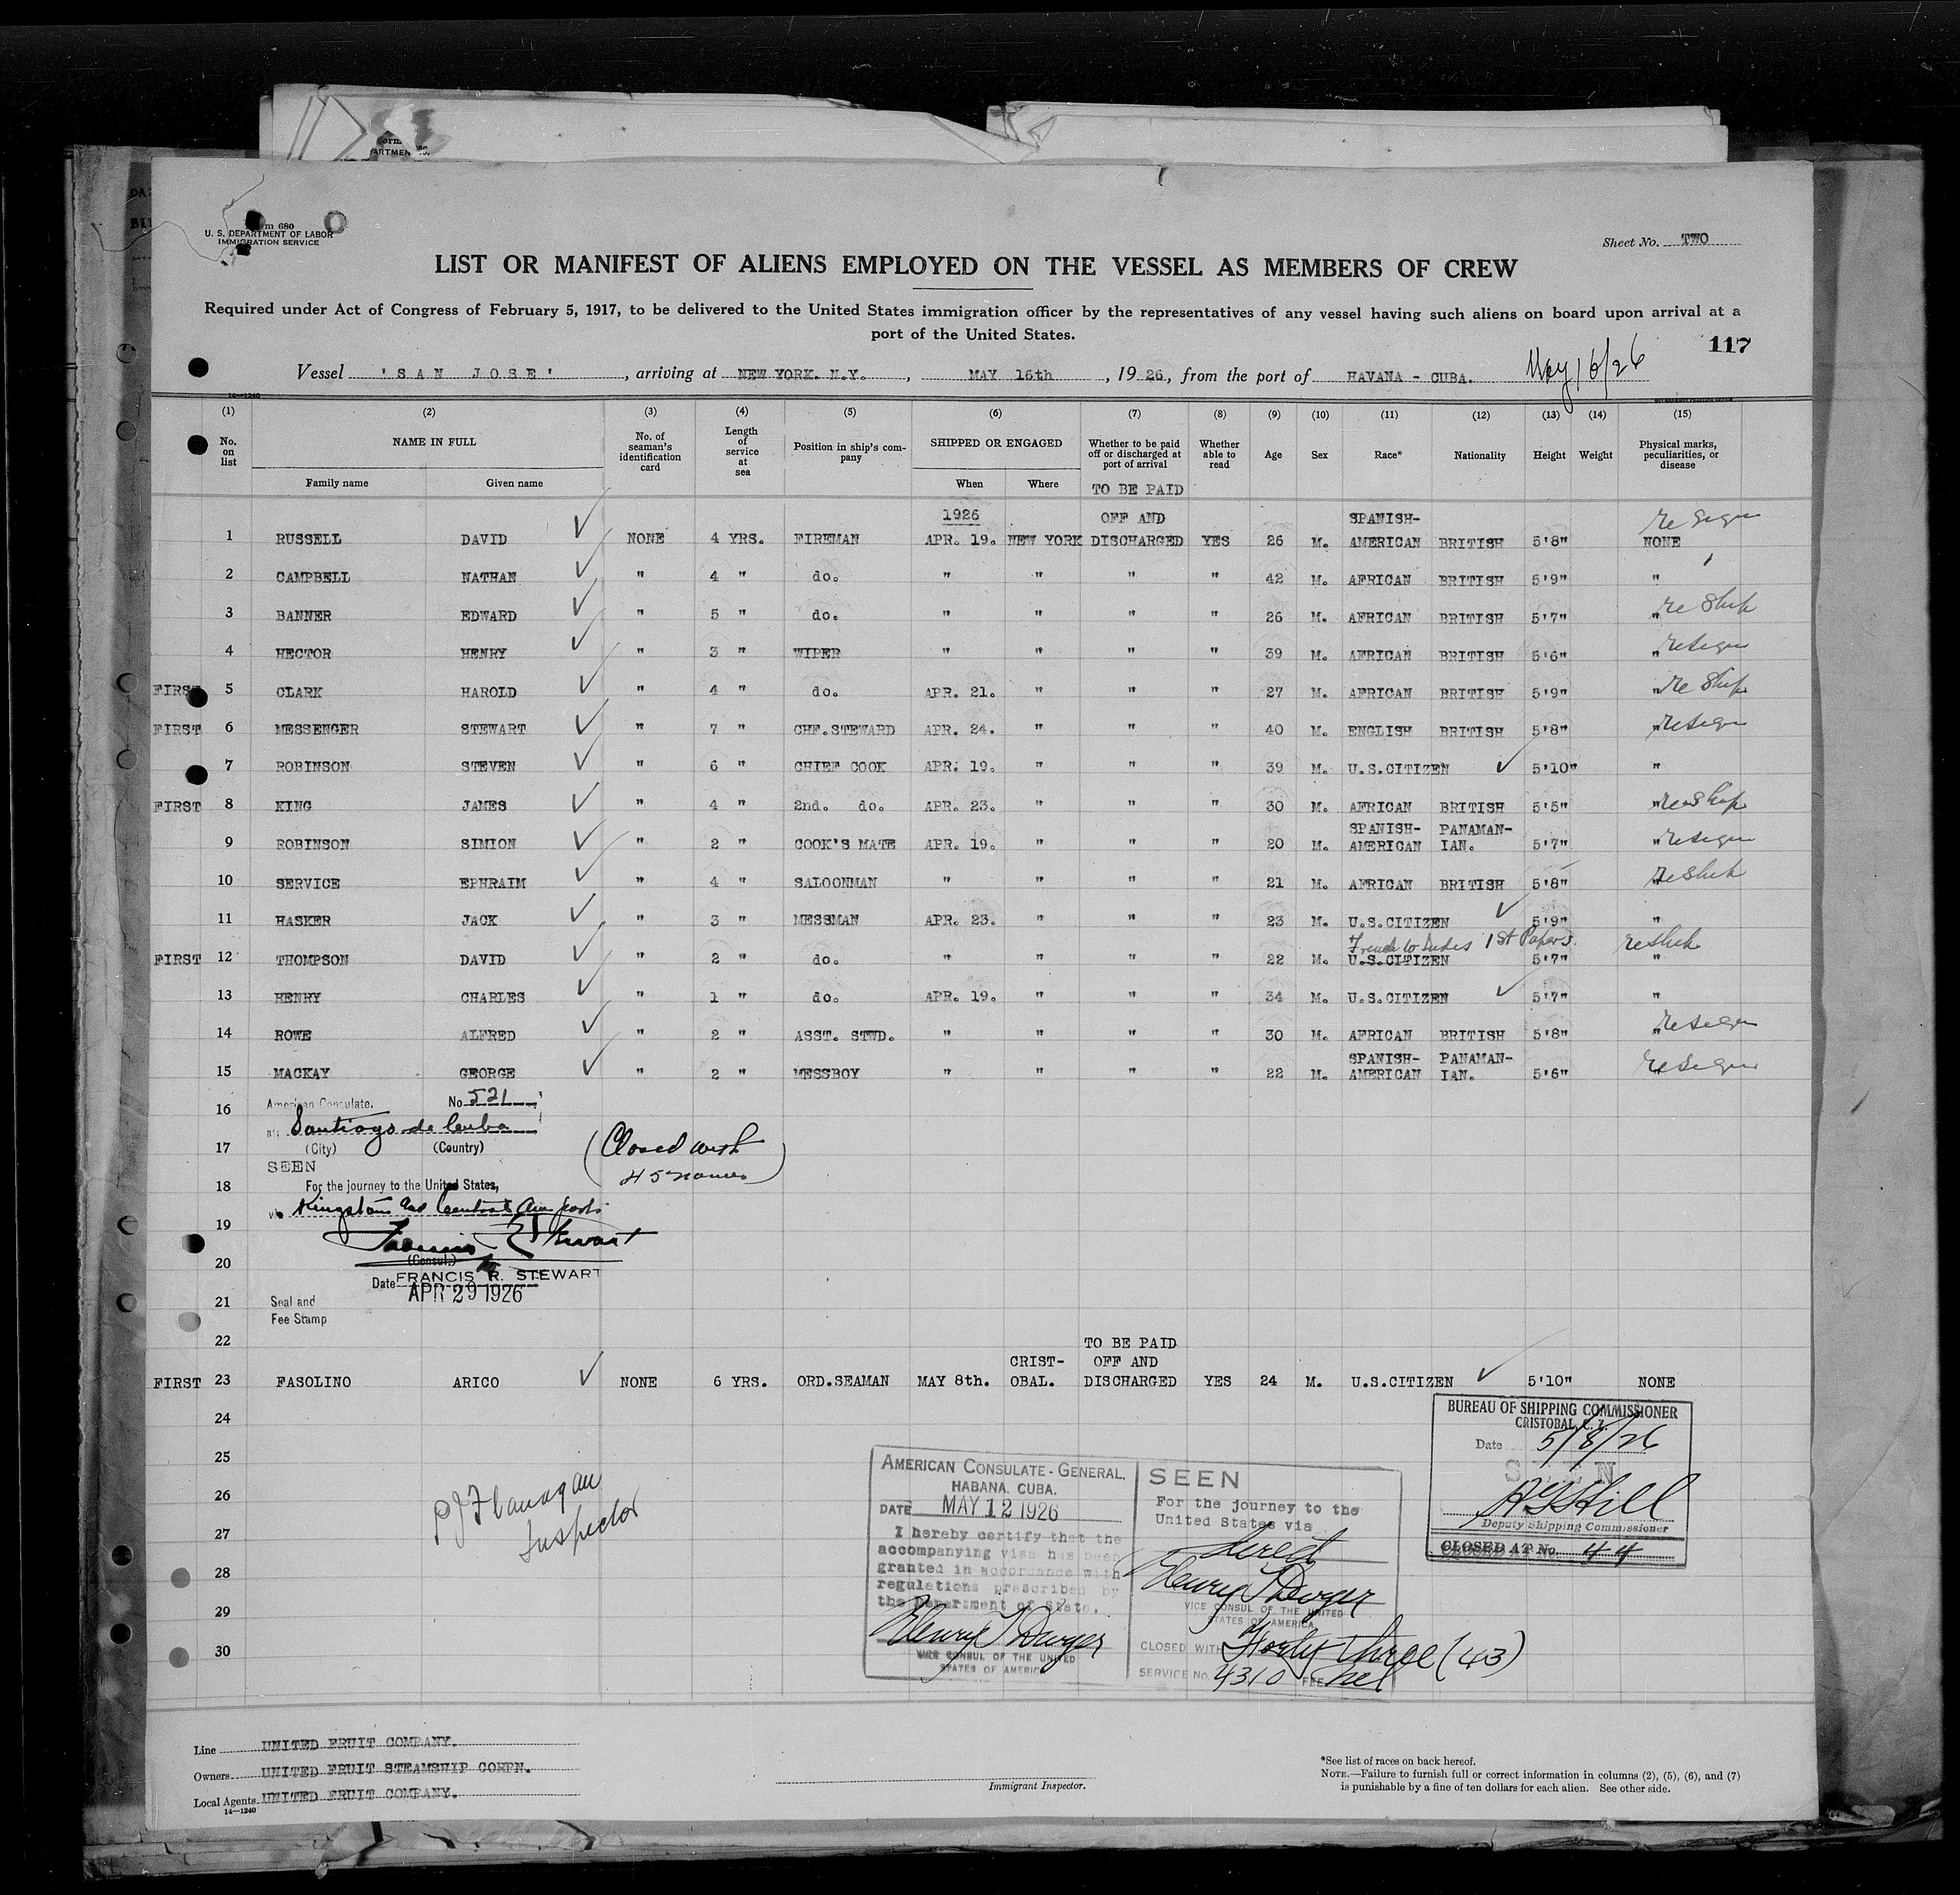 Form 680
U. S. DEPARTMENT OF LABOR
IMMIGRATION SERVICE
Sheet No. TWO
LIST OR MANIFEST OF ALIENS EMPLOYED ON THE VESSEL AS MEMBERS OF CREW
Required under Act of Congress of February 5, 1917, to be delivered to the United States immigration officer by the representatives of any vessel having such aliens on board upon arrival at a
port of the United States.
117
Vessel 'SAN JOSE', arriving at NEW YORK. N.Y., MAY 16th, 1926, from the port of HAVANA - CUBA. May 16/26
14—1240
(1) (2) (3) (4) (5) (6) (7) (8) (9) (10) (11) (12) (13) (14) (15)
No. on list NAME IN FULL No. of seaman's identification card Length of service at sea Position in ship's company SHIPPED OR ENGAGED Whether to be paid off or discharged at port of arrival Whether able to read Age Sex Race* Nationality Height Weight Physical marks, peculiarities, or disease
Family name Given name When Where
TO BE PAID
1926 OFF AND SPANISH- resign
1 RUSSELL DAVID NONE 4 YRS. FIREMAN APR. 19. NEW YORK DISCHARGED YES 26 M. AMERICAN BRITISH 5'8" NONE
2 CAMPBELL NATHAN " 4 " do. " " " " 42 M. AFRICAN BRITISH 5'9" "
3 BANNER EDWARD " 5 " do. " " " " 26 M. AFRICAN BRITISH 5'7" " reship
4 HECTOR HENRY " 3 " WIPER " " " " 39 M. AFRICAN BRITISH 5'6" " resign
FIRST 5 CLARK HAROLD " 4 " do. APR. 21. " " " 27 M. AFRICAN BRITISH 5'9" " reship
FIRST 6 MESSENGER STEWART " 7 " CHF.STEWARD APR. 24. " " " 40 M. ENGLISH BRITISH 5'8" " resign
7 ROBINSON STEVEN " 6 " CHIEF COOK APR. 19. " " " 39 M. U.S.CITIZEN 5'10" "
FIRST 8 KING JAMES " 4 " 2nd. do. APR. 23. " " " 30 M. AFRICAN BRITISH 5'5" " reship
SPANISH- PANAMAN-
9 ROBINSON SIMION " 2 " COOK'S MATE APR. 19. " " " 20 M. AMERICAN IAN. 5'7" " resign
10 SERVICE EPHRAIM " 4 " SALOONMAN " " " " 21 M. AFRICAN BRITISH 5'8" " reship
11 HASKER JACK " 3 " MESSMAN APR. 23. " " " 23 M. U.S.CITIZEN 5'9" "
French W Indies 1st Papers. reship
FIRST 12 THOMPSON DAVID " 2 " do. " " " " 22 M. U.S.CITIZEN 5'7" "
13 HENRY CHARLES " 1 " do. APR. 19. " " " 34 M. U.S.CITIZEN 5'7" "
14 ROWE ALFRED " 2 " ASST. STWD. " " " " 30 M. AFRICAN BRITISH 5'8" " resign
SPANISH- PANAMAN-
15 MACKAY GEORGE " 2 " MESSBOY " " " " 22 M. AMERICAN IAN. 5'6" resign
16
American Consulate, No 521
at Santiago de Cuba
17
(City) (Country)
(Closed with
45 names)
SEEN
18
For the journey to the United States,
via Kingston and Central Am ports
19
Francis R Stewart
20
(Consul)
FRANCIS R. STEWART
Date APR 29 1926
21
Seal and
Fee Stamp
22
TO BE PAID
CRIST- OFF AND
FIRST 23 FASOLINO ARICO NONE 6 YRS. ORD.SEAMAN MAY 8th. OBAL. DISCHARGED YES 24 M. U.S.CITIZEN 5'10" NONE
24
25
26
27
28
29
30
BUREAU OF SHIPPING COMMISSIONER
CRISTOBAL C. Z.
Date 5/8/26
SEEN
Hill
Deputy Shipping Commissioner
CLOSED AT No. 44
PJ Flanagan
Inspector
AMERICAN CONSULATE-GENERAL,
HABANA. CUBA.
DATE MAY 12 1926
I hereby certify that the
accompanying visa has been
granted in accordance with
regulations prescribed by
the Department of State.
Henry T Dwyer
VICE CONSUL OF THE UNITED
STATES OF AMERICA
SEEN
For the journey to the
United States via
direct
Henry T Dwyer
VICE CONSUL OF THE UNITED
STATES OF AMERICA
CLOSED WITH Forty three (43)
SERVICE NO. 4310 FEE nil
Line UNITED FRUIT COMPANY.
Owners UNITED FRUIT STEAMSHIP CORPN.
Local Agents UNITED FRUIT COMPANY.
14—1240
Immigrant Inspector.
*See list of races on back hereof.
NOTE.—Failure to furnish full or correct information in columns (2), (5), (6), and (7)
is punishable by a fine of ten dollars for each alien. See other side.